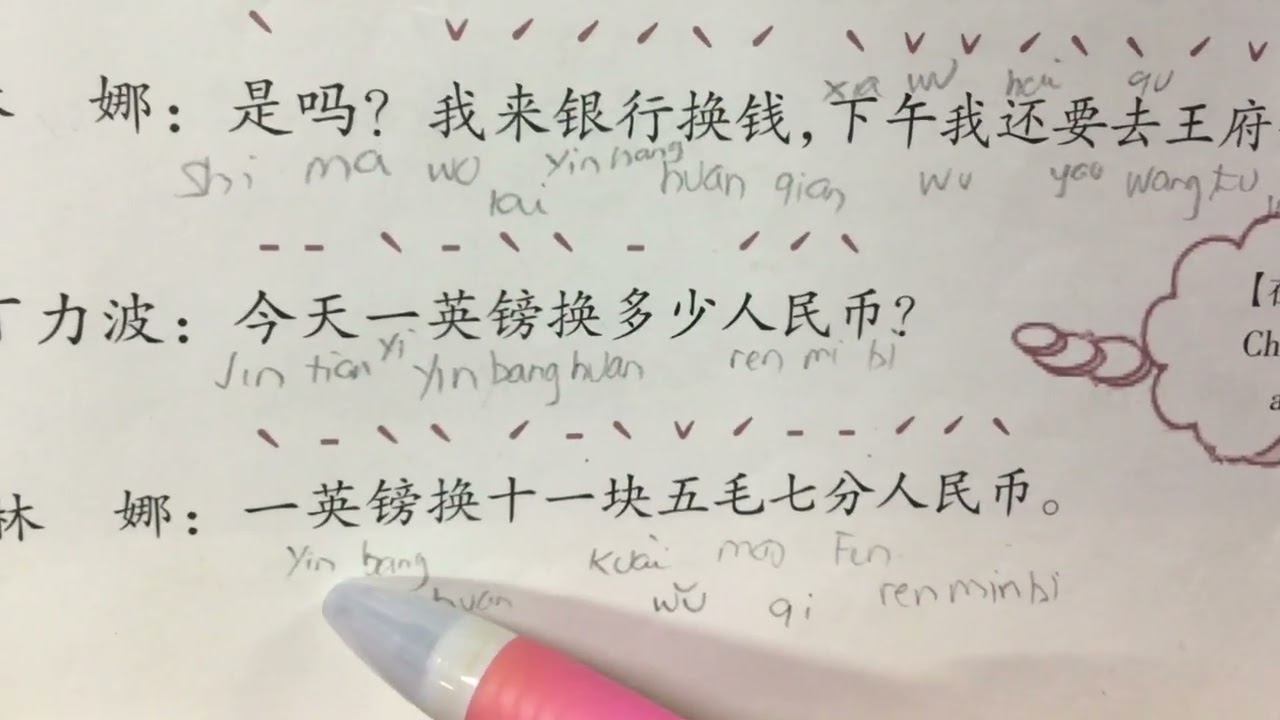 娜：是吗？我来银行换钱，下午我还要去王府
xia wu hai qu
shi ma wo lai yin hang huan qian wu yao wang fu
丁力波：今天一英镑换多少人民币？
Jin tian yi yin bang huan ren mi bi
林 娜：一英镑换十一块五毛七分人民币。
yin bang huan kuài mao Fen
wǔ qi renminbi
Ch